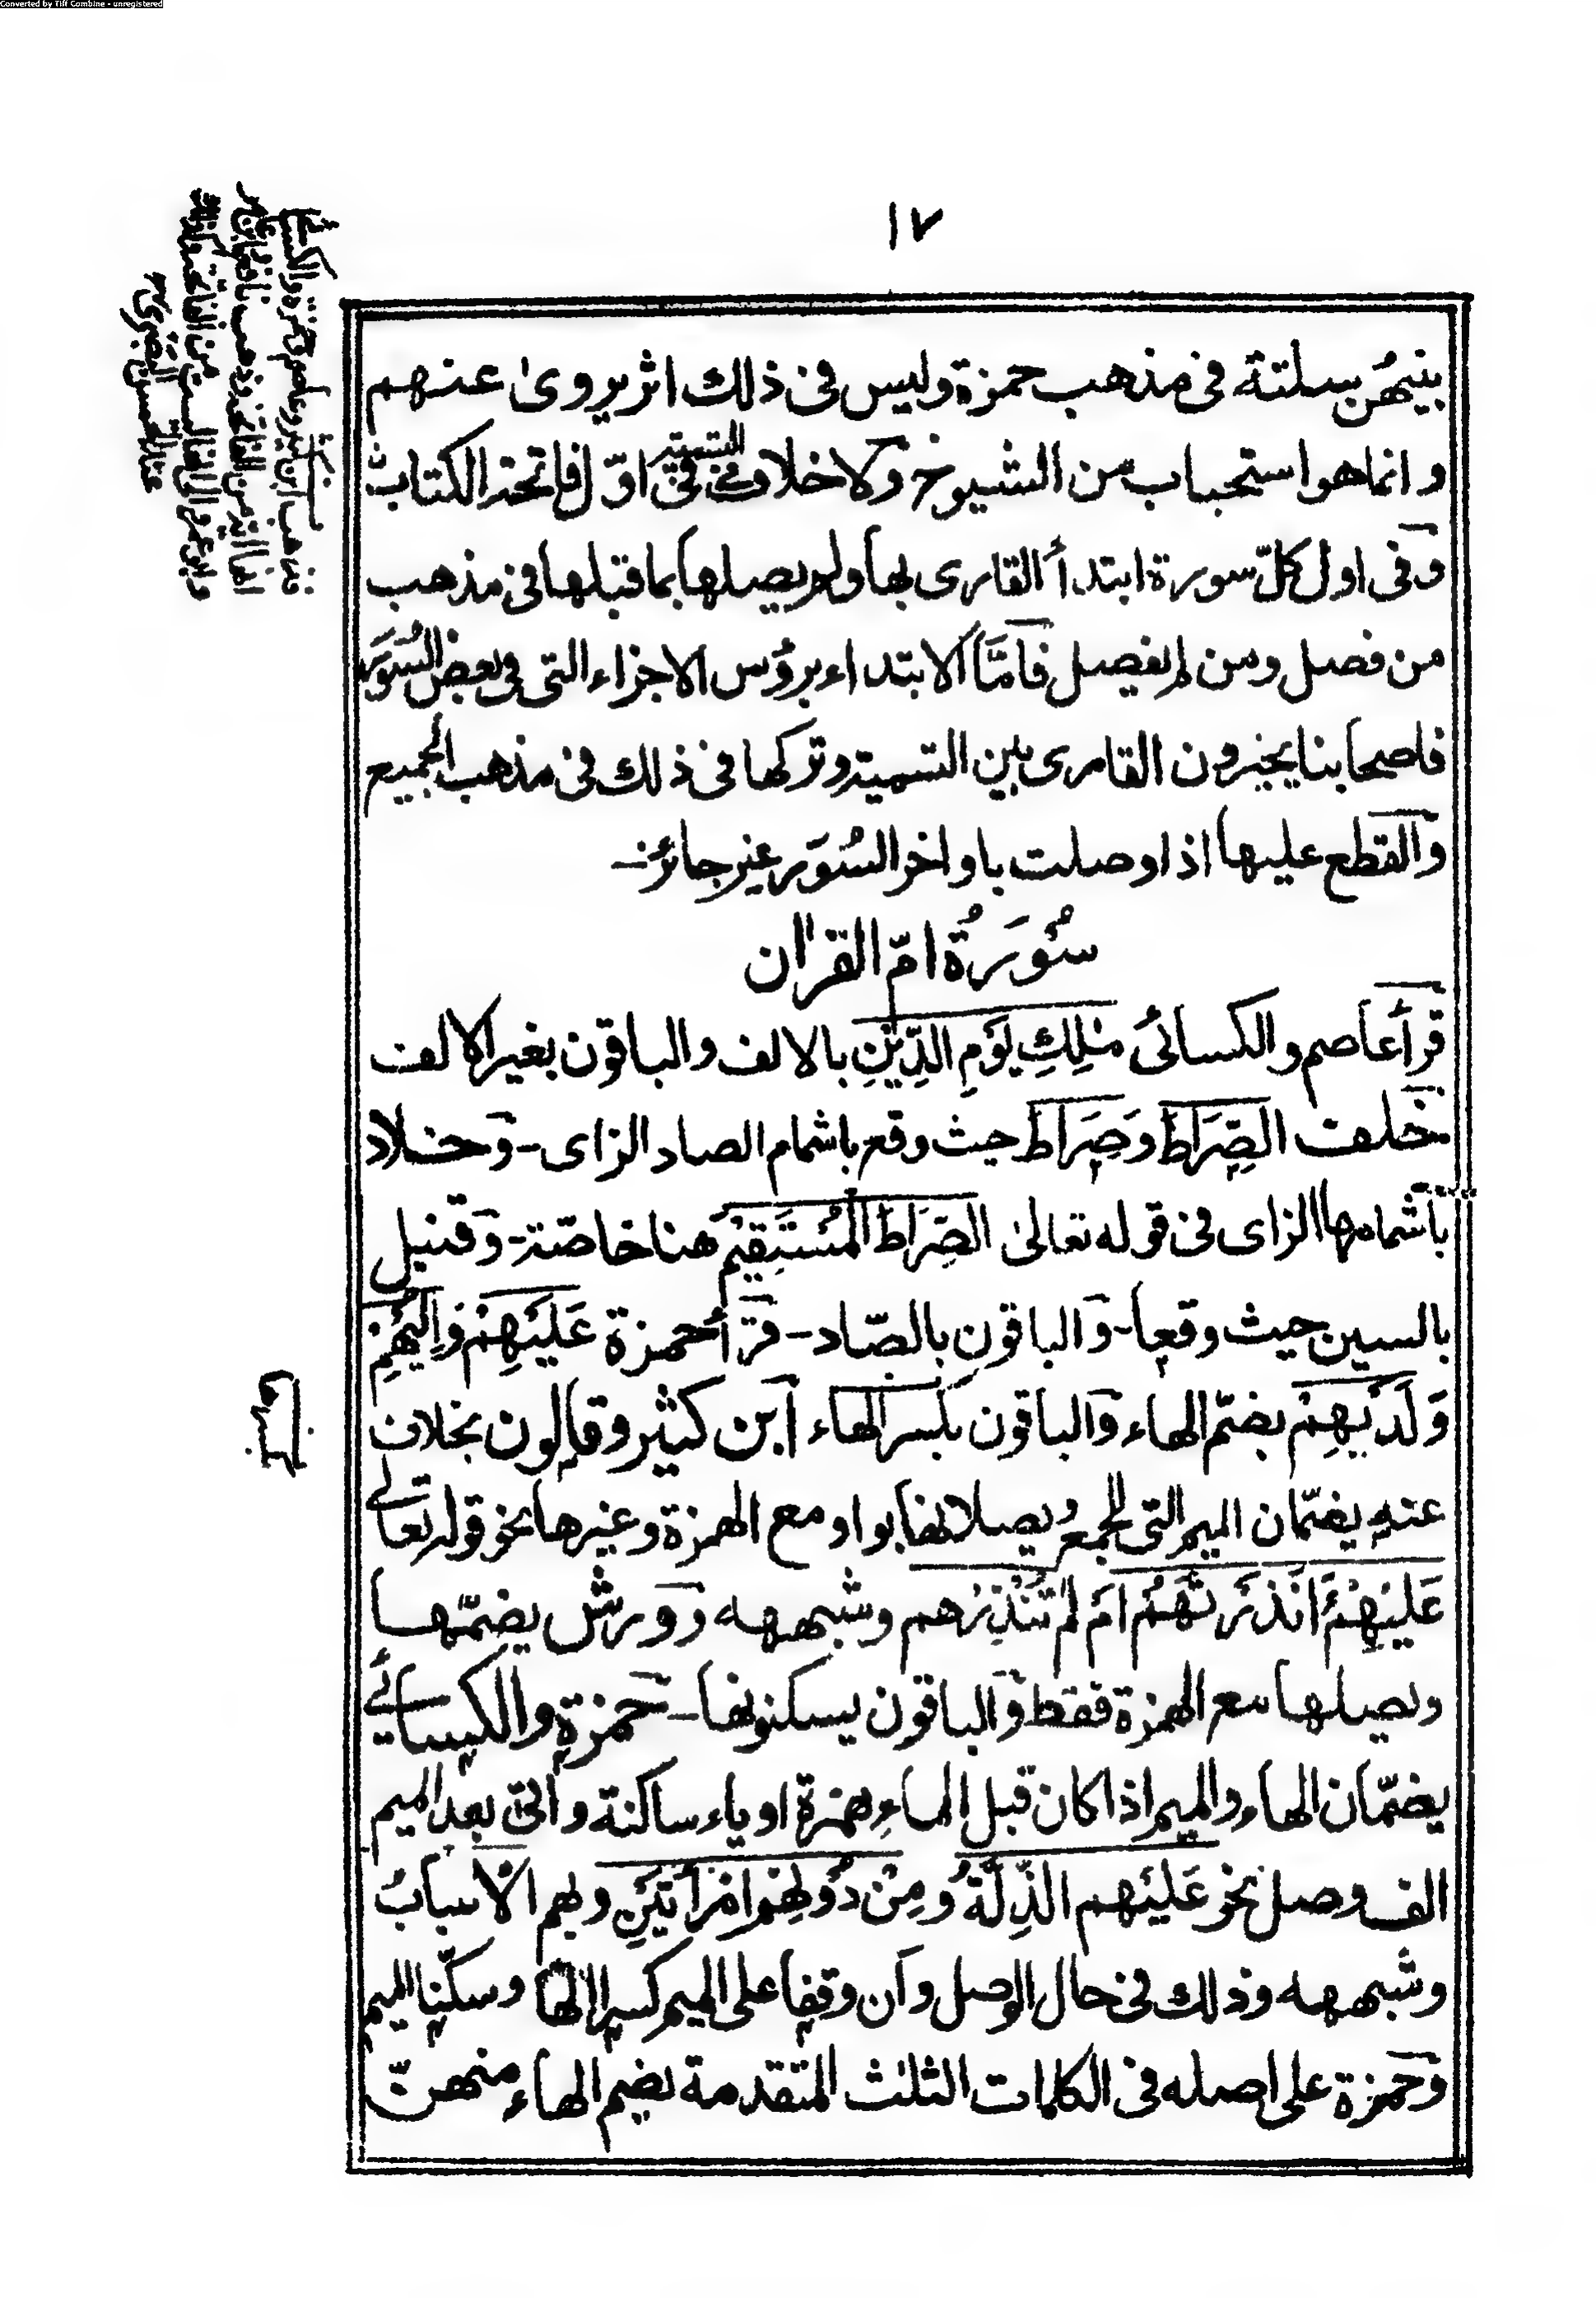 Converted by Tiff Combine - unregistered
١٧
بينهن بسكتة فى مذهب حمزة وليس فى ذلك اثر يروى عنهم
وانما هو استحباب من الشيوخ ولا خلاف فى التسمية فى اوّل فاتحة الكتاب
وفى اول كلّ سورة ابتدأ القارى بها ولم يصلها بما قبلها فى مذهب
من فصل ومن لم يفصل فامّا الابتداء برؤس الاجزاء التى فى بعض السُّوَر
فاصحابنا يخيرون القارى بين التسمية وتركها فى ذلك فى مذهب الجميع
والقطع عليها اذا وصلت باواخر السُوَر غير جائز-
سُوْرَةُ امّ القرٰان
قرأ عاصم والكسائى مٰلِكِ يَوْمِ الدِّيْنِ بالالف والباقون بغير الالف
خلف الصِّرَاطَ وَصِرَاطَ حيث وقع باشمام الصاد الزاى - وخلاد
باشمامها الزاى فى قوله تعالىٰ الصِّرَاطَ الْمُسْتَقِيْمَ هنا خاصّة - وقنبل
بالسين حيث وقعا - والباقون بالصّاد - قرأ حمزة عَلَيْهِمْ وَاِلَيْهِمْ
وَلَدَيْهِمْ بضمّ الهاء والباقون بكسر الهاء ابن كثير وقالون بخلاف
عنه يضمّان الميم التى للجمع ويصلانها بواو مع الهمزة وغيرها نحو قوله تعالى
عَلَيْهِمْ ءَاَنْذَرْتَهُمْ اَمْ لَمْ تُنْذِرْهم وشبهه وورش يضمّها
ويصلها مع الهمزة فقط والباقون يسكنونها - حمزة والكسائى
يضمّان الهاء والميم اذا كان قبل الهاء همزة او ياء ساكنة واتى بعد الميم
الف وصل نحو عَلَيْهم الذِّلَّةُ ومِنْ دُوْنِهِمُ امْرَأَتَيْنِ وبهم الْاَسبابُ
وشبهه وذلك فى حال الوصل وان وقفا على الميم كسرا الها وسكّنا الميم
وحمزة على اصله فى الكلمات الثلٰث المتقدمة بضم الهاء منهنّ